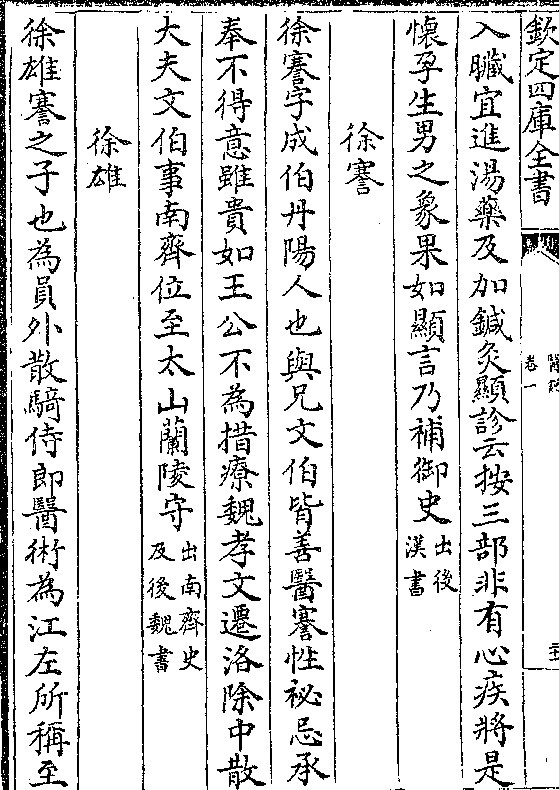 欽定四庫全書
醫說
卷一
入臟宜進湯藥及加鍼灸顯診云按三部非有心疾將是
懷孕生男之象果如顯言乃補御史出後漢書
徐謇
徐謇字成伯丹陽人也與兄文伯皆善醫謇性祕忌承
奉不得意雖貴如王公不為措療魏孝文遷洛除中散
大夫文伯事南齊位至太山蘭陵守出南齊史及後魏書
徐雄
徐雄謇之子也為員外散騎侍郎醫術為江左所稱至